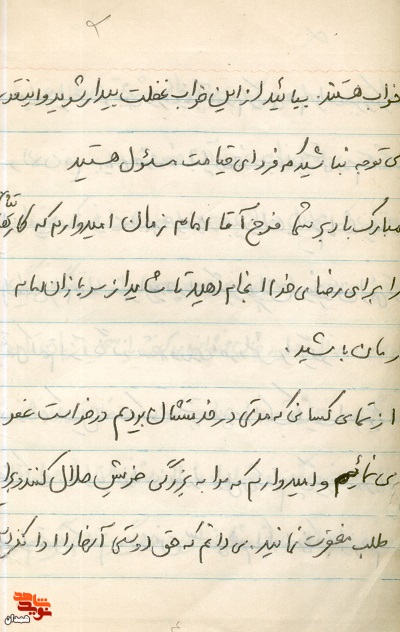 ۲
خواب هستند. بیائید از این خواب غفلت بیدار شوید و اینقدر
بی توجه نباشید که فردای قیامت مسئول هستید
مبارک باد بر شما فرج آقا امام زمان امیدوارم که کارهایتان
را برای رضای خدا انجام دهید تا شاید از سربازان امام
زمان باشید.
از تمامی کسانی که مدتی در خدمتشان بودم درخواست عفو
می نمائیم و امیدوارم که مرا به بزرگی خودش حلال کنند و برایم
طلب مغفرت نمائید. می دانم که حق دوستی آنها را ادا نکردم
نوید شاهد